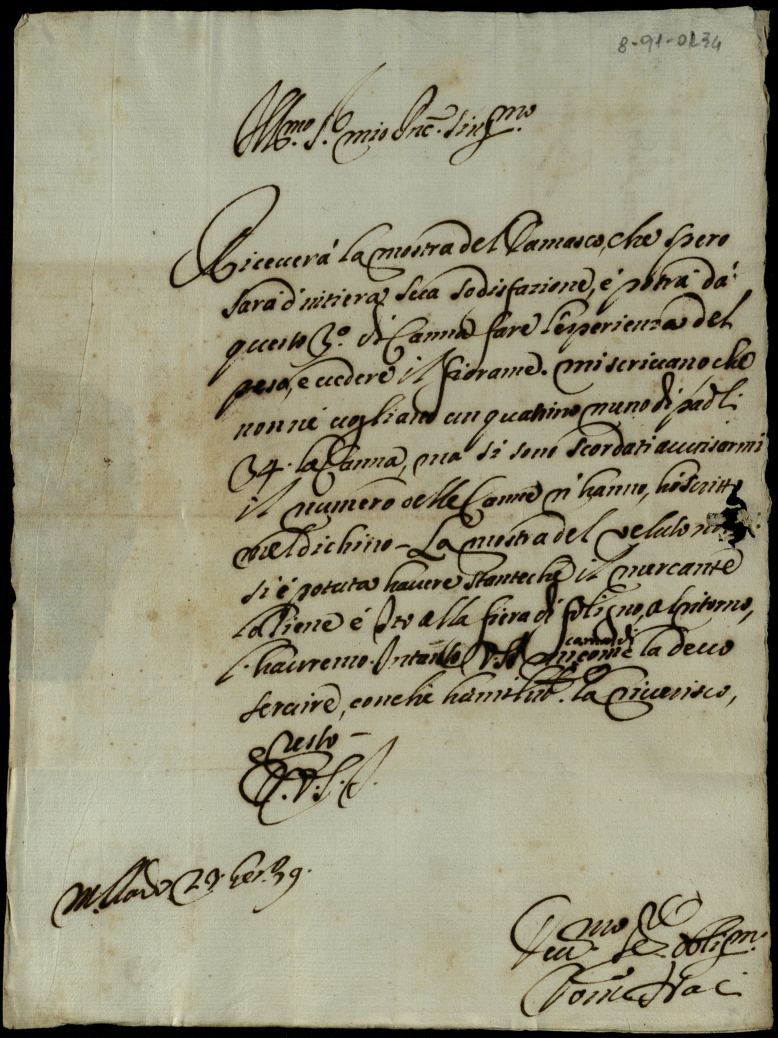 8-91-0234
Ill.mo S.r mio P.ne Sing.mo
Riceverà la mostra del Damasco, che spero
sarà d'intiera sua sodisfazione, é potrà da
questo 3.º di Canna fare l'esperienza del
peso, e vedere il fiorame. mi scrivano che
non né vogliano un quatrino meno di paoli
34. la Canna, ma si sono scordati avvisarmi
il numero delle Canne n'hanno, hò scritto
mel dichino - La mostra del veluto non
si é potuta havere stanteche il mercante
la tiene é ito alla fiera di foligno, al ritorno,
l'havremo. Intanto V.S. mi comandi la devo
servire, con che humilm.te la riverisco,
e resto -
D. V. S. I.
29
Dev.mo Se.re obblig.mo